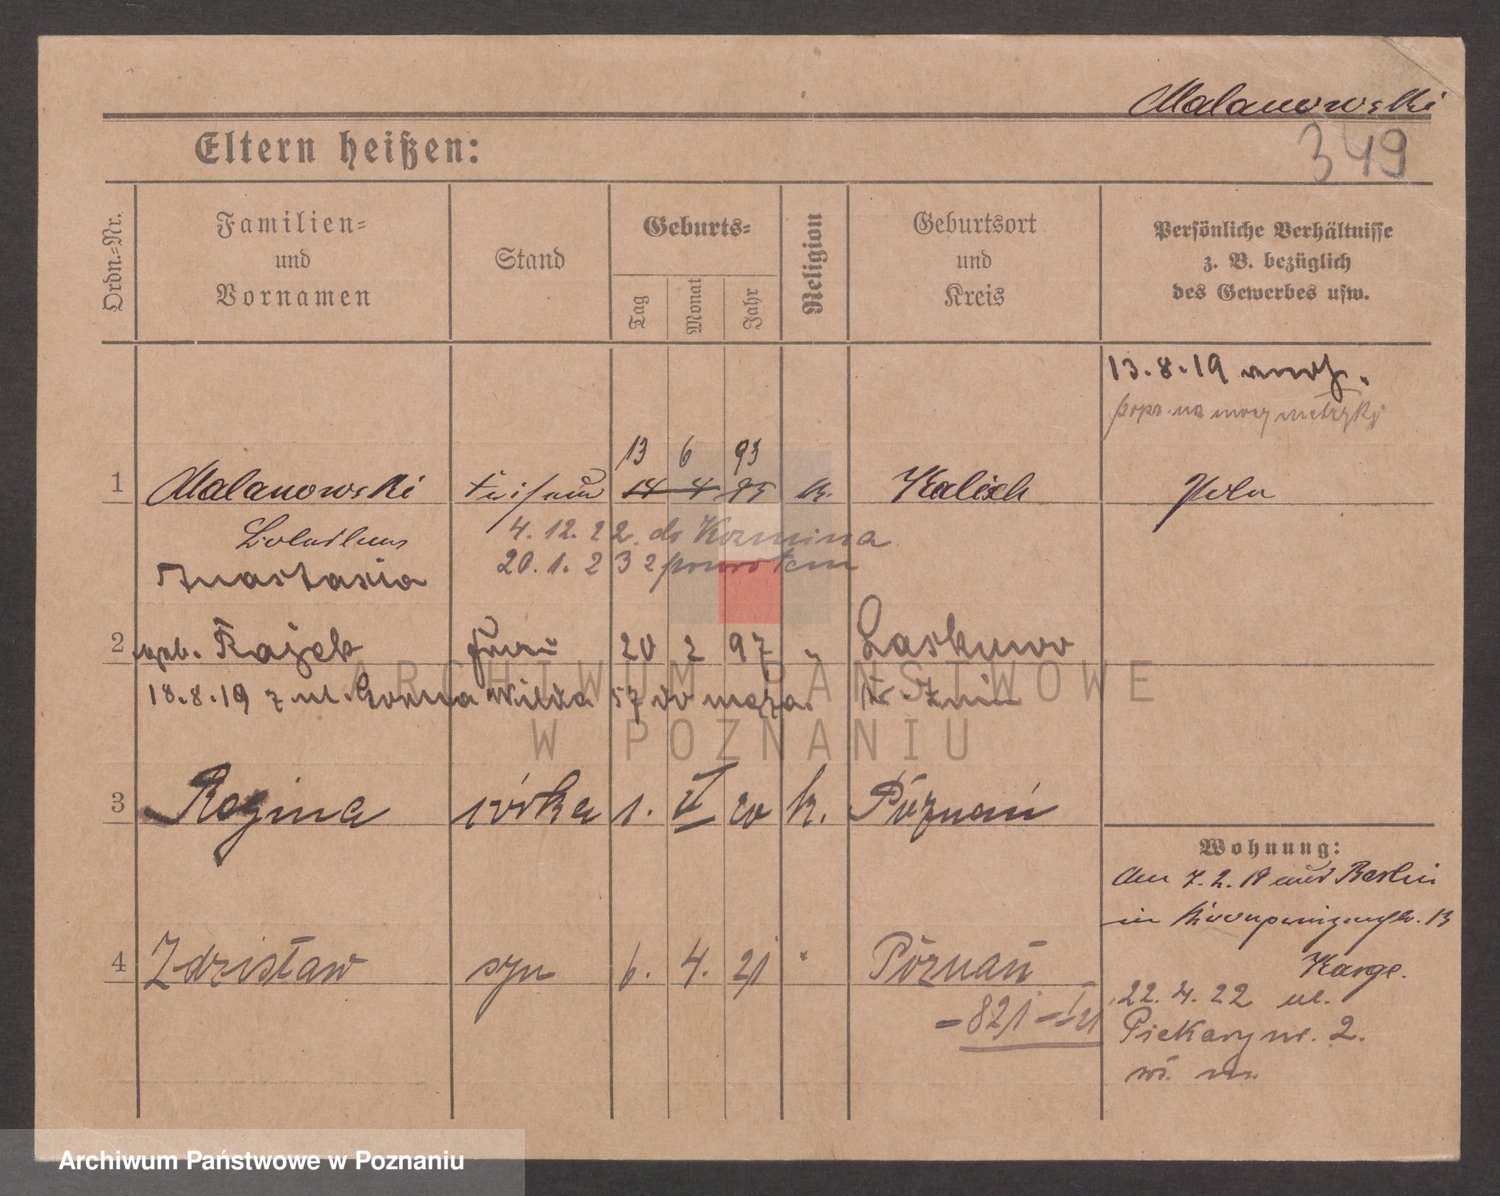 Malanowski
349
Eltern heißen:
Ordn.-Nr.
Familien-
und
Vornamen
Stand
Geburts-
Tag
Monat
Jahr
Religion
Geburtsort
und
Kreis
Persönliche Verhältnisse
z. B. bezüglich
des Gewerbes usw.
13.8.19
popr. na mocy metryki
13 6 93
1 Malanowski 14 4 95 k. Kalisch Pole
4.12.22 do Kozmina
20.1.23 z powrotem
Anastasia
2 geb. Rajek Frau 20 2 97 " Laskowo
18.8.19 z ul. Gorna Wilda 57 do męża. Kr. Znin
3 Regina córka 1. II 20 k. Poznań
Wohnung:
Am 7.2.19 aus Berlin
in 13
Karge.
4 Zdzisław syn 6. 4. 21 " Poznań
22.4.22 ul.
- 821 - I 21
Piekary nr. 2.
ARCHIWUM PAŃSTWOWE
W POZNANIU
Archiwum Państwowe w Poznaniu